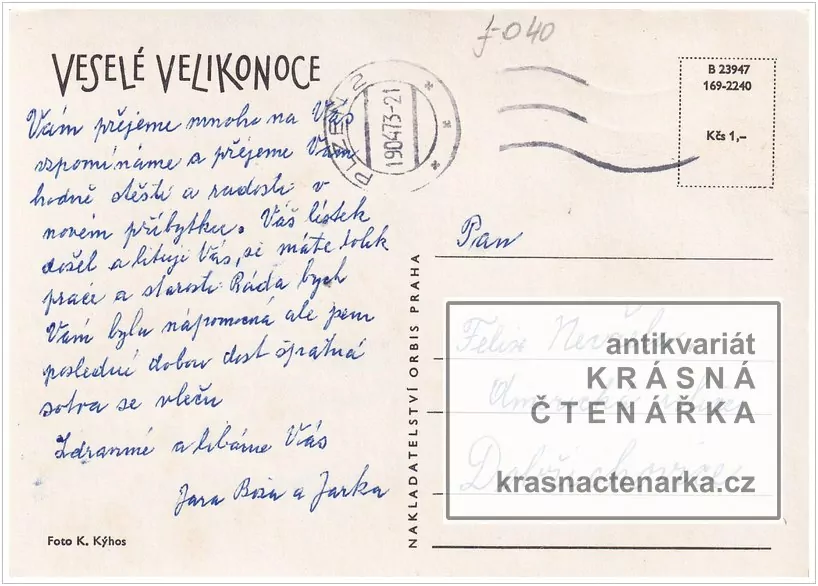 f-040
VESELÉ VELIKONOCE
Vám přejeme mnoho na Vás
vzpomínáme a přejeme Vám
hodně štěstí a radosti v
novém příbytku. Váš lístek
došel a lituji Vás, že máte tolik
práce a starostí. Ráda bych
Vám byla nápomocná ale jsem
poslední dobou dost špatná
sotva se vleču
Zdravíme a líbáme Vás
Jara Boža a Jarka
Foto K. Kýhos
PLZEŇ 2
19.04.73-21
B 23947
169-2240
Kčs 1,–
NAKLADATELSTVÍ ORBIS PRAHA
Pan
Felix
Americká
Dobřichovice
antikvariát
KRÁSNÁ
ČTENÁŘKA
krasnactenarka.cz